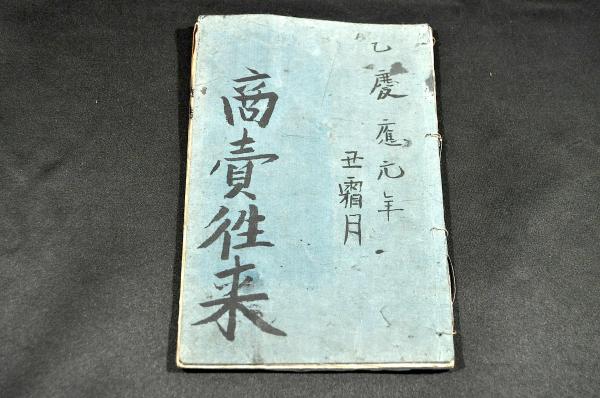 乙慶應元年
丑霜月
商賣徃来